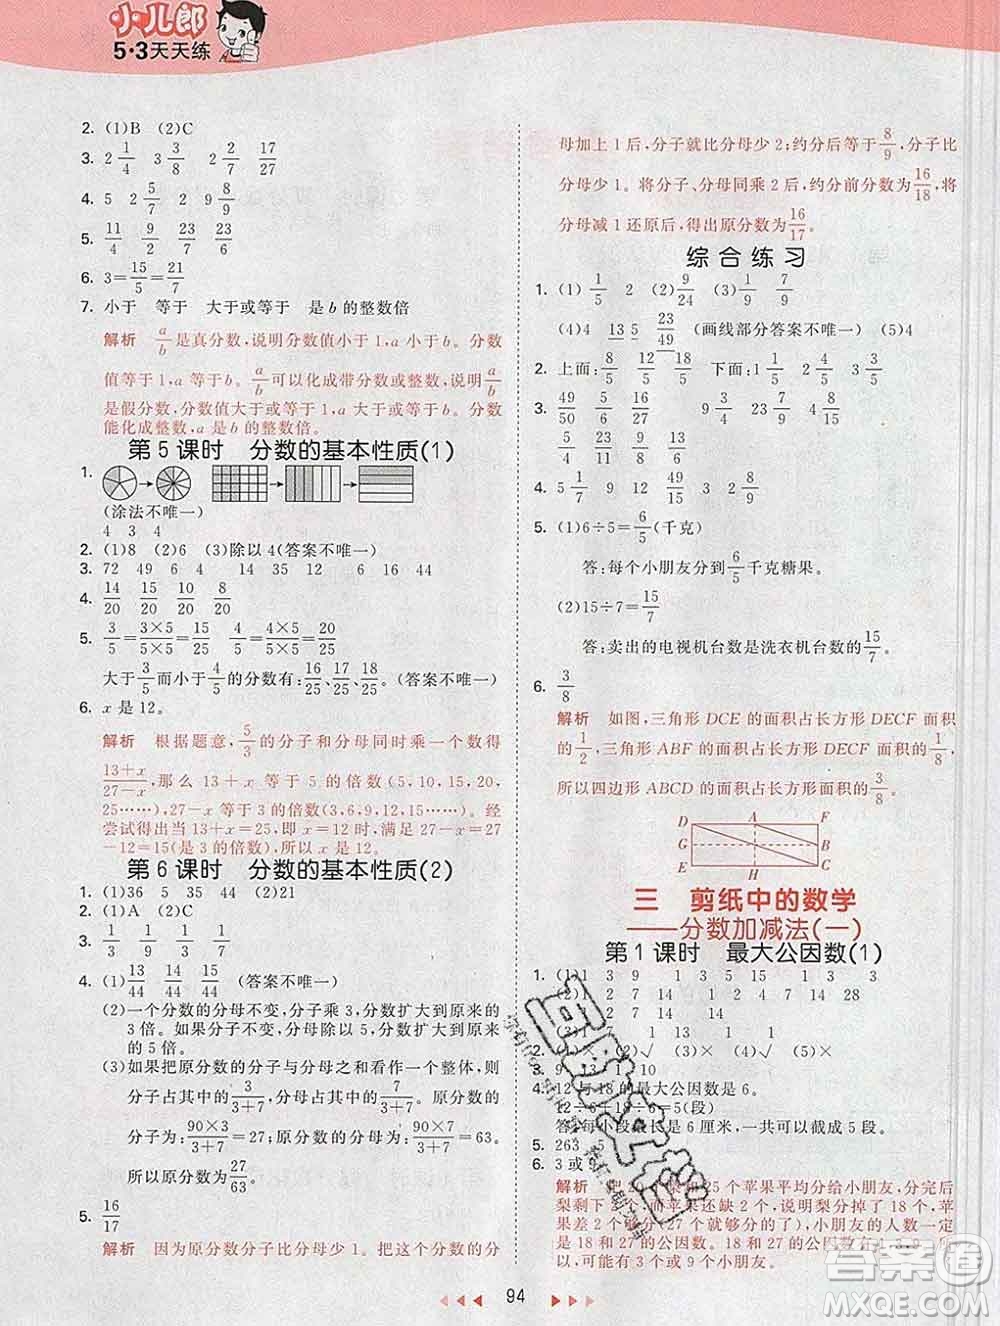 小儿郎
5·3天天练
2. (1)B (2)C
3. 2 1/4 3 3/8 2/7 17/27
4. 5 2 5/7 2 9 2/9
5. 11/4 4/9
6. 3=15/5=21/7
7. 小于 等于 大于或等于 是b的整数倍
解析 a/b是真分数,说明分数值小于1,a小于b。分数
值等于1,a等于b。a/b可以化成带分数或整数,说明
是假分数,分数值大于或等于1,a大于或等于b。分数
能化成整数,a是b的整数倍。
第5课时 分数的基本性质(1)
1.
(涂法不唯一)
4 3 4
2. (1)8 (2)6 (3)除以4(答案不唯一)
3. 72 49 6 4 14 6 16 44
4. 14/20 15/20 12/20 10/20
5. 3/5=3×5/5×5=15/25 4/5=4×5/5×5=20/25
大于3/5而小于4/5的分数有:16/25、17/25、18/25。(答案不唯一)
6. x是12。
解析 根据题意,5/3的分子和分母同时乘某个数得
13+x/27-x,那么13+x等于5的倍数(5,10,15,20,
25,……),27-x等于3的倍数(3,6,9,12,……)。经
尝试得出当13+x=25,即x=12时,满足27-x=
15(是3的倍数),所以x是12。
第6课时 分数的基本性质(2)
1. (1)36 5 35 44 (2)21
2. (1)A (2)C
3. 1/3 1/9 1/3 4/9
4. (1)13/44 14/44 15/44 (答案不唯一)
(2)一个分数的分母不变,分子乘3,分数扩大到原来的
3倍。如果分子不变,分母除以5,分数扩大到原来
的5倍。
(3)如果把原分数的分子与分母之和看作一个整体,
分子占其中的3/3+7,分母占其中的7/3+7。原分数的
分子为:90×3/3+7=27,原分数的分母为:90×7/3+7=63。
所以原分数为27/63。
5. 16/17
解析 因为原分数分子比分母少1。把这个分数的分
母加上1后,分子就比分母少2;约分后等于8/9,分子比
分母少1。将分子、分母同乘2后,约分前分数为16/18,将
分母减1还原后,得出原分数为16/17。
综合练习
1. (1)1/5 2 (2)9/24 (3)1/5
(4)4 13 5 23/49(画线部分答案不唯一) (5)4
2. 上面:8/5 12/5 18/5 下面:1 1/5 2 2/5 3 3/5
3. 49/50 6/5 16/30 9 2/4 4 8/15
4. 5 1/7 9 48/12 14/15
5. (1)6÷5=6/5(千克)
答:每个小朋友分到6/5千克糖果。
(2)15÷7=15/7
答:卖出的电视机台数是洗衣机台数的15/7。
6. 3/8
解析 如图,三角形DCE的面积占长方形DECF面积
的1/2,三角形ABF的面积占长方形DECF面积的1/8,
所以四边形ABCD的面积占长方形DECF面积的3/8。
D A F
G B
E H C
三 剪纸中的数学
——分数加减法(一)
第1课时 最大公因数(1)
3 9 1 3 9 15 1 3 3
2 7 14 1 2 4 7 14 28
1 2 7 14 14
4. 12与18的最大公因数是6。
答:每小段最长是6厘米,一共可以截成5段。
5. 263 5
6. 3或9
解析 平均分给小朋友,分完后
成2个(27个就够分),小朋友的人数一定
是18和27的公因数。18和27的公因数有1,3,9,所以小朋友
可能有3个或9个小朋友。
94
答案圈
MXQE.COM